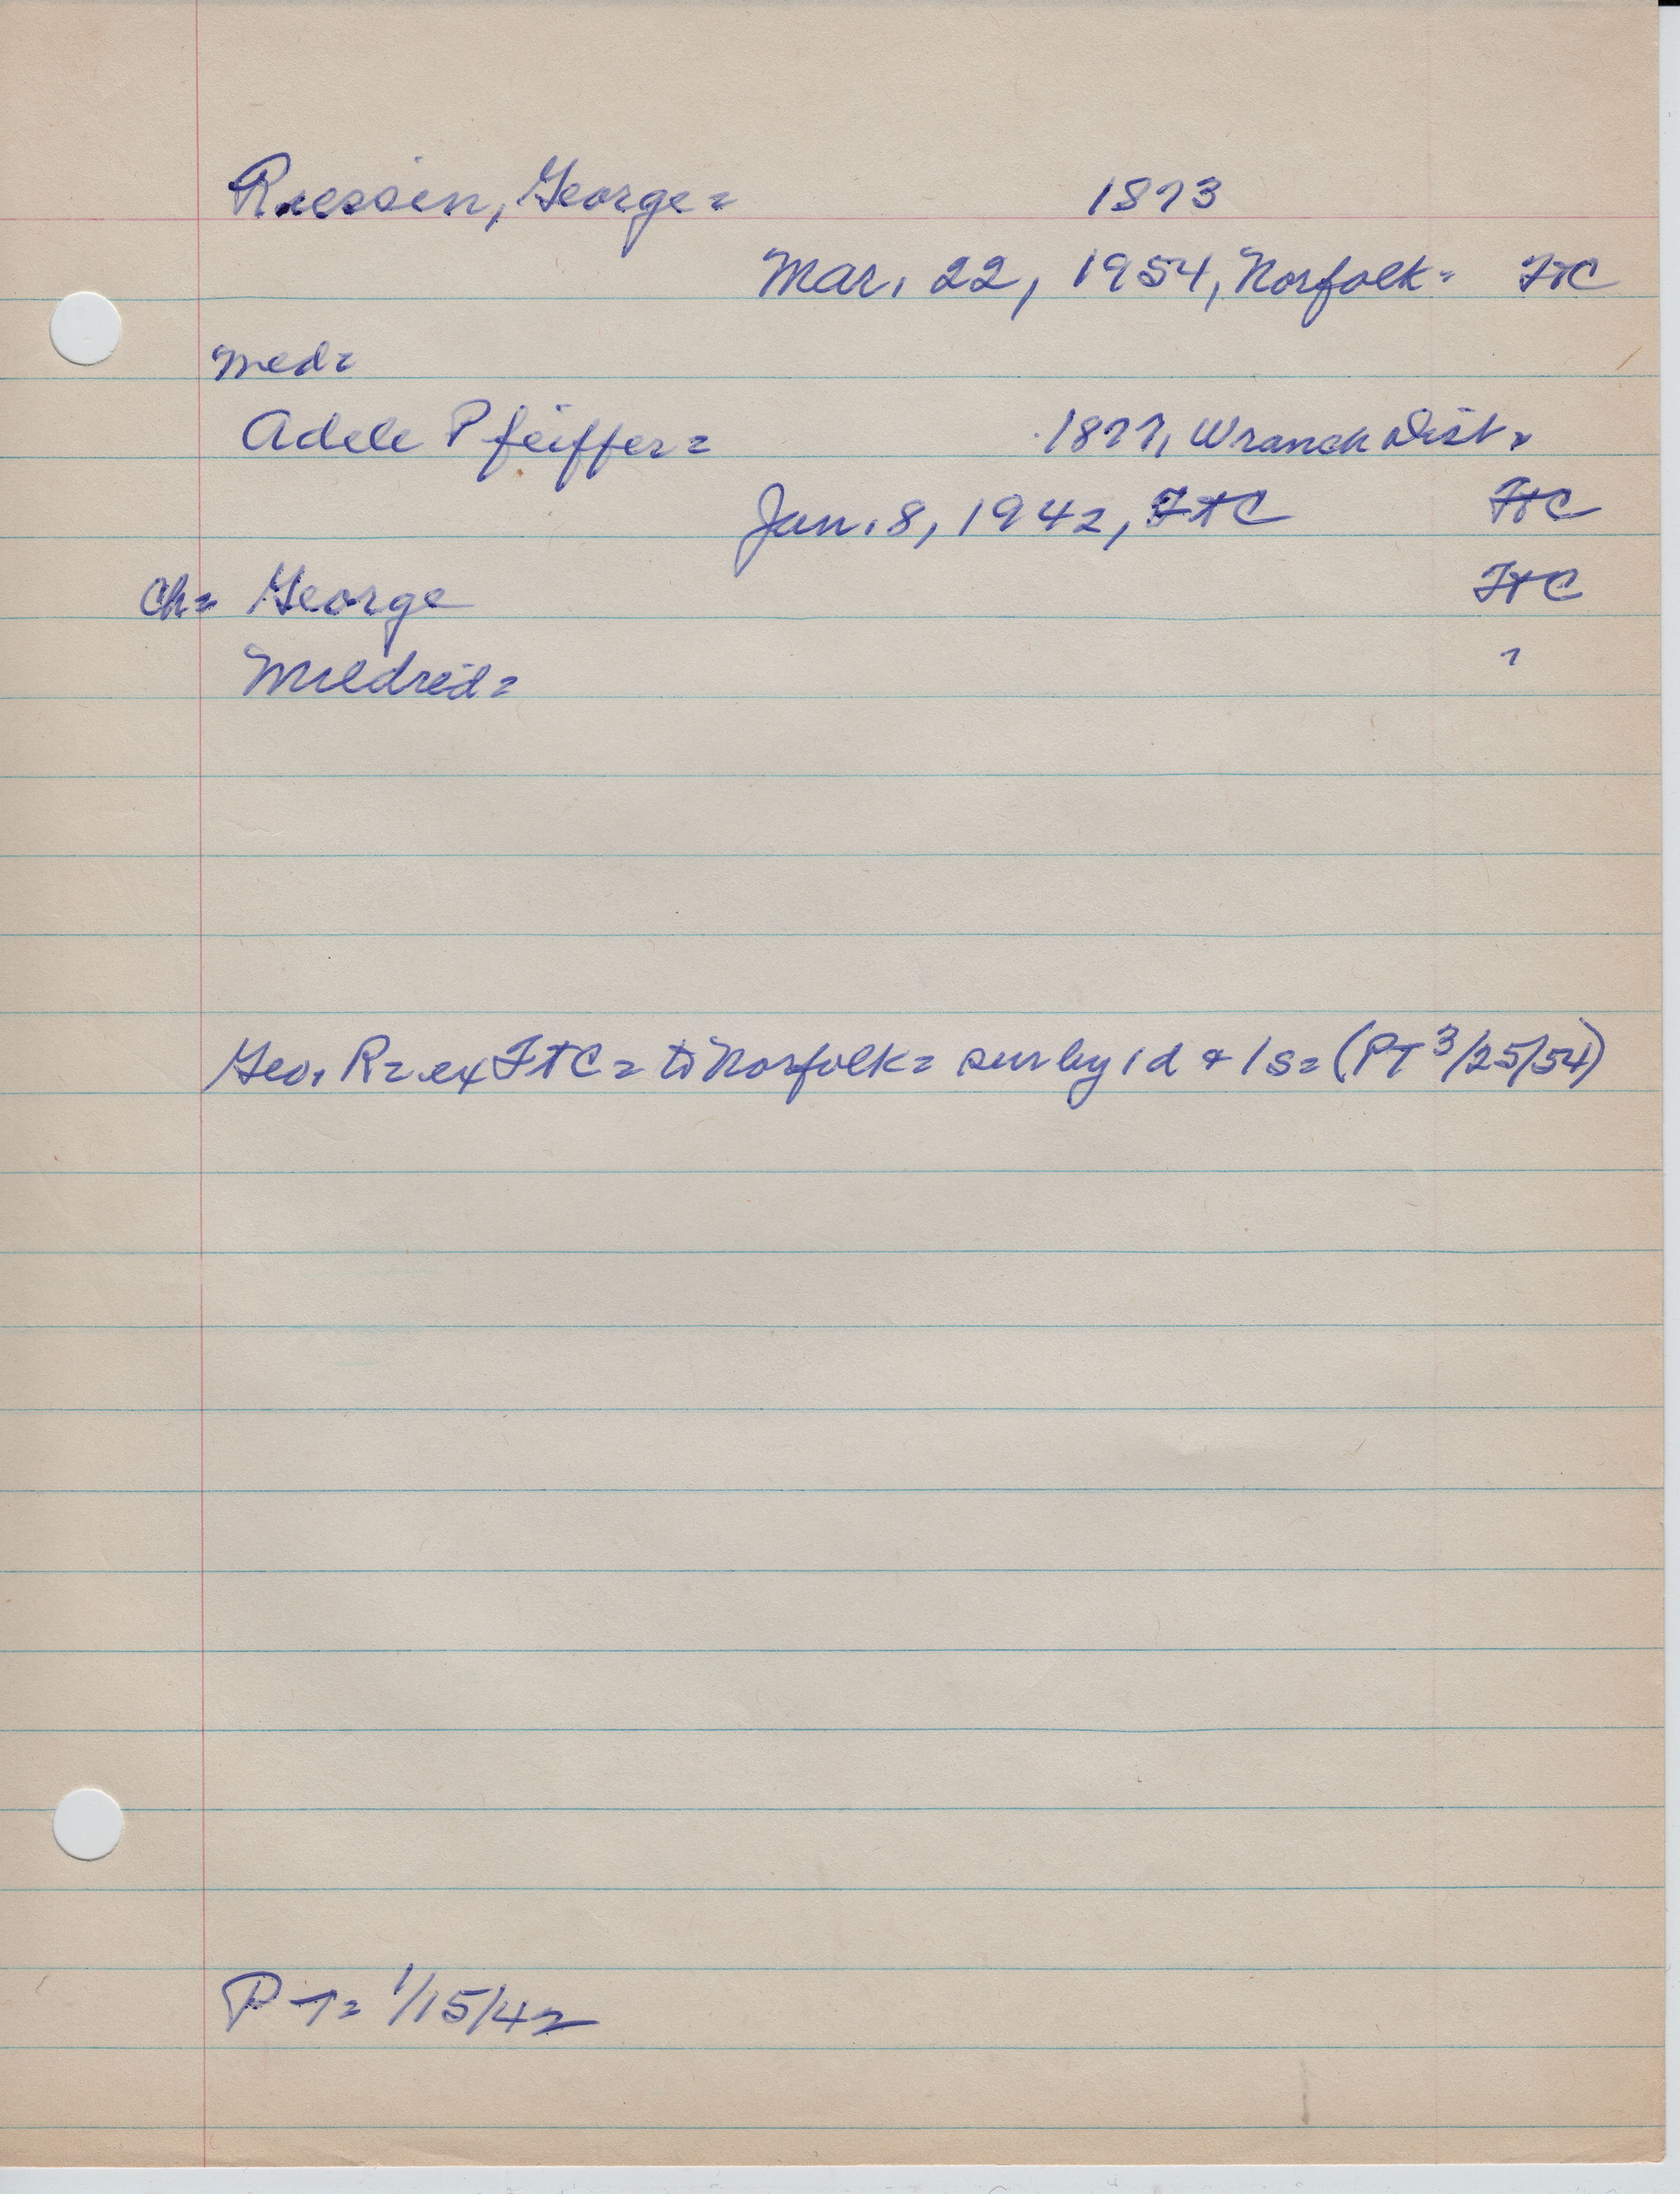 Riessen, George = 1873
Mar. 22, 1954, Norfolk = FtC
med=
Adele Pfeiffer = 1877, W ranch Dist.
Jan. 8, 1942, FtC FtC
Ch= George FtC
Mildred = "
Geo. R = ex FtC = to Norfolk = sur by 1 d + 1 s = (PT 3/25/54)
PT = 1/15/42